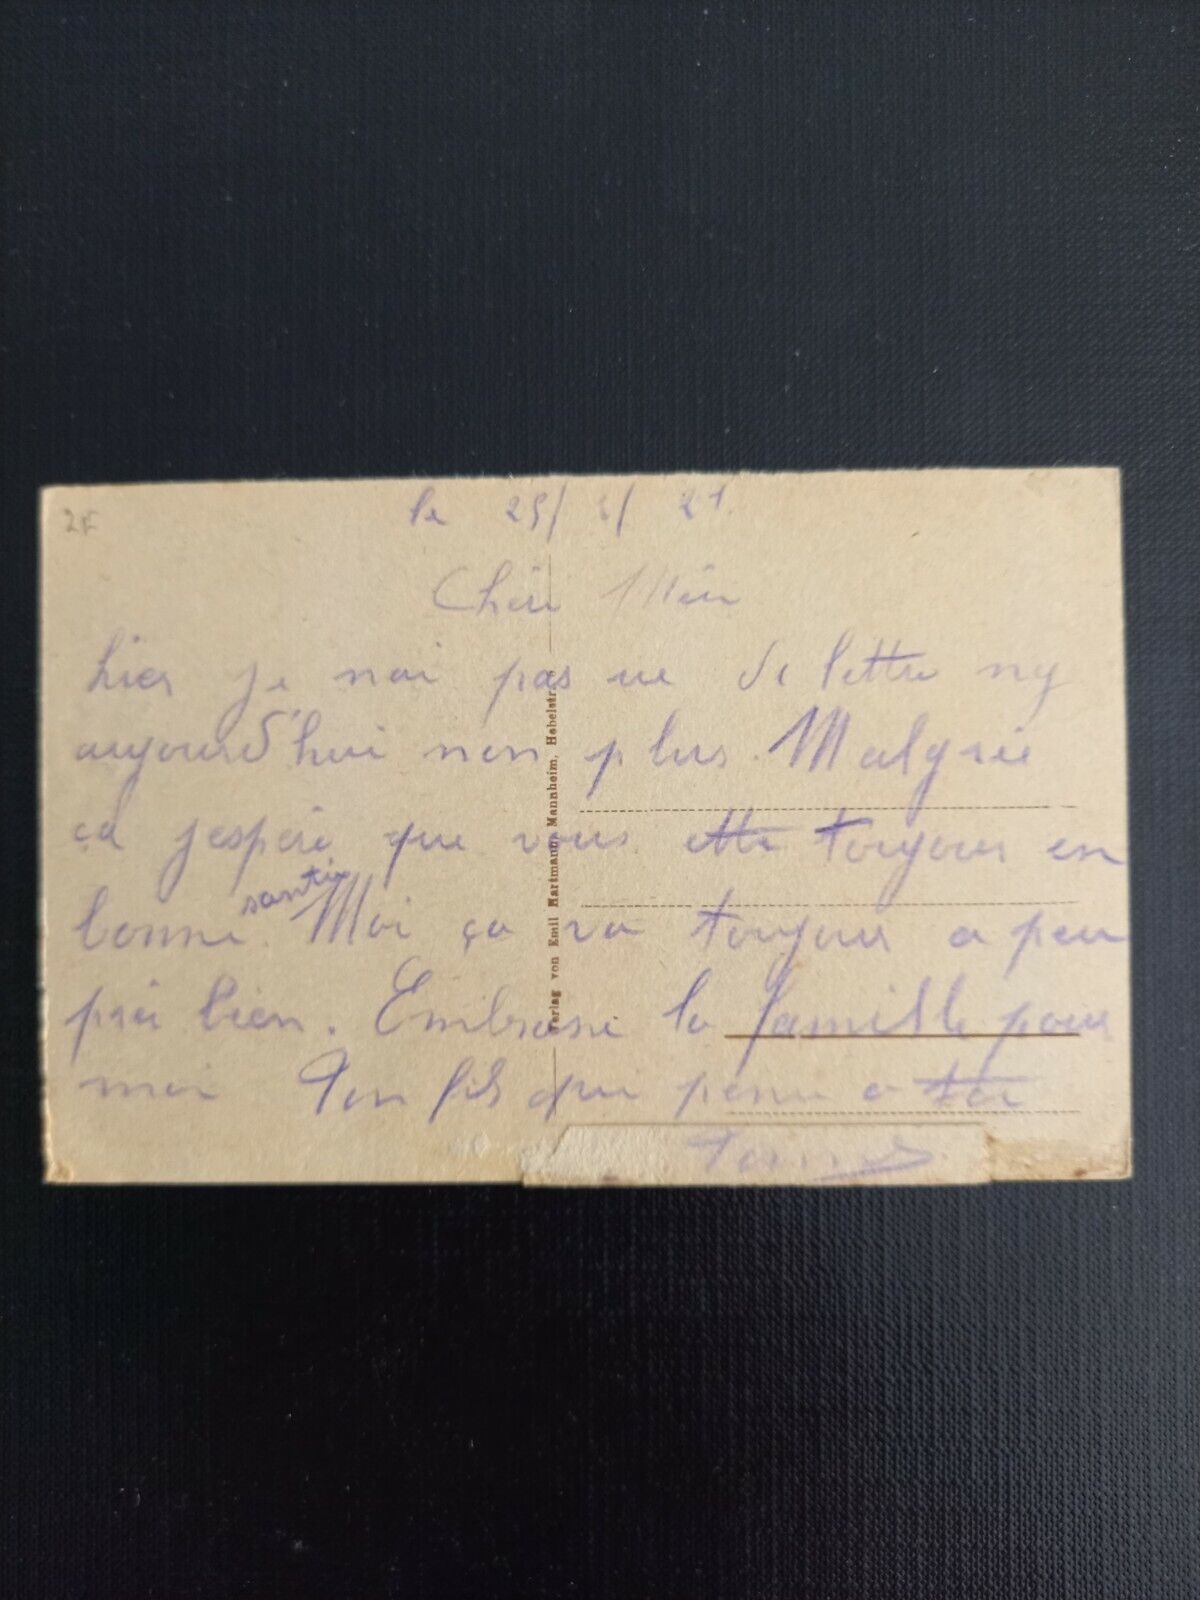 2F
le 25/ / 21.
Chère Mère
hier je nai pas ue de lettre ny
aujourd'hui non plus. Malgrée
ça jespère que vous ette toujour en
bonne santé. Moi ça va toujour a peu
près bien. Embrasse la famille pour
moi Ton fils qui pense a toi
Verlag von Emil Hartmann, Mannheim, Hebelstr.